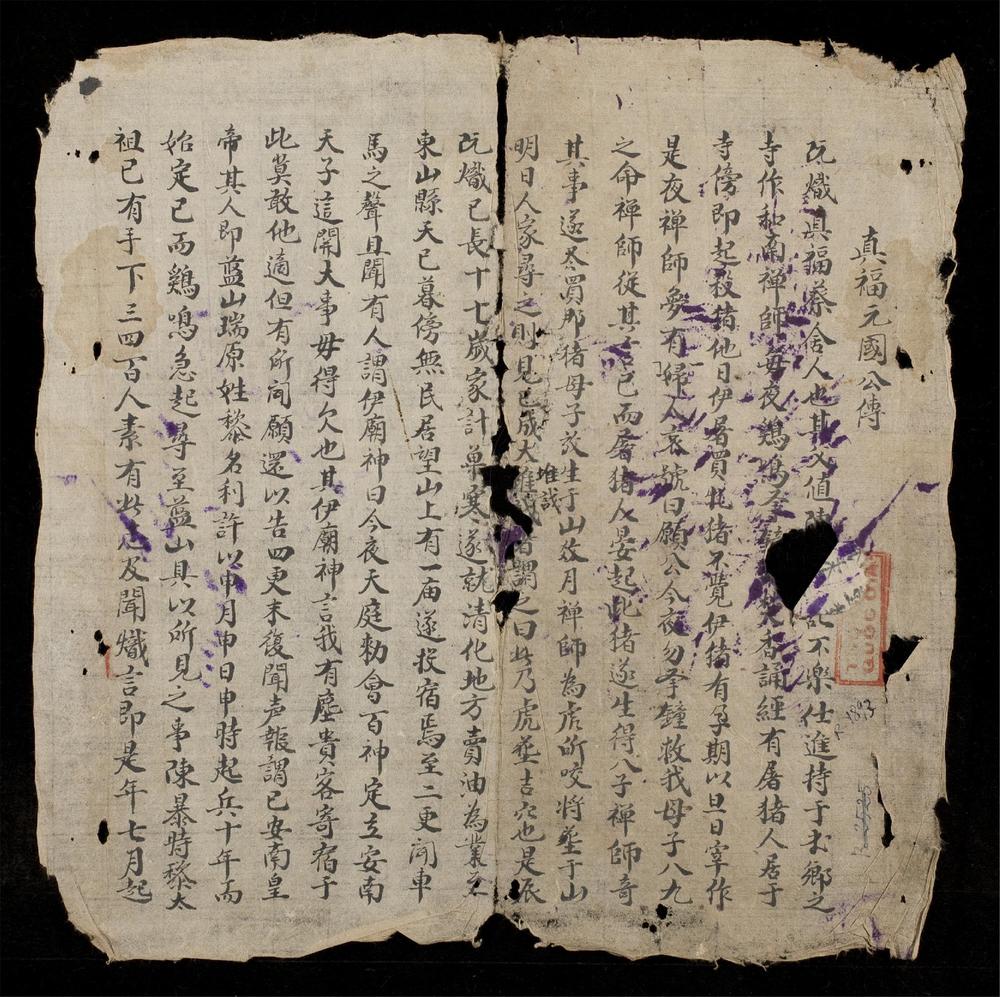 真福元國公傳
阮熾真福蔡舍人也其父值 乱不樂仕進持于本鄉之
寺作和尚禪師每夜鷄鳴 焚香誦經有屠猪人居于
寺傍即起殺猪他日伊屠買牝猪不覺伊猪有孕期以旦日宰作
是夜禪師夢有婦人哀號曰願公今夜勿爭鐘救我母子八九
之命禪師從其言已而屠猪人晏起此猪遂生得八子禪師奇
其事遂 買那猪母子放生于山数月禪師為虎所咬將塟于山
明日人家尋之則見已成大堆 者謂之曰此乃虎塟吉穴也是辰
堆哉
阮熾已長十七歲家計單寒遂就清化地方賣油為業至
東山縣天已暮傍無民居望山上有一庙遂投宿焉至二更闻車
馬之聲具聞有人謂伊廟神曰今夜天庭勑會百神定立安南
天子這開大事毋得欠也其伊廟神言我有塵貴客寄宿于
此莫敢他適但有所闻願還以告四更末復聞声報謂已安南皇
帝其人即藍山瑞原姓黎名利許以申月申日申時起兵十年而
始定已而鷄鳴急起尋至藍山具以所見之事陳暴時黎太
祖已有手下三四百人素有此志及聞熾言即是年七月起
1893